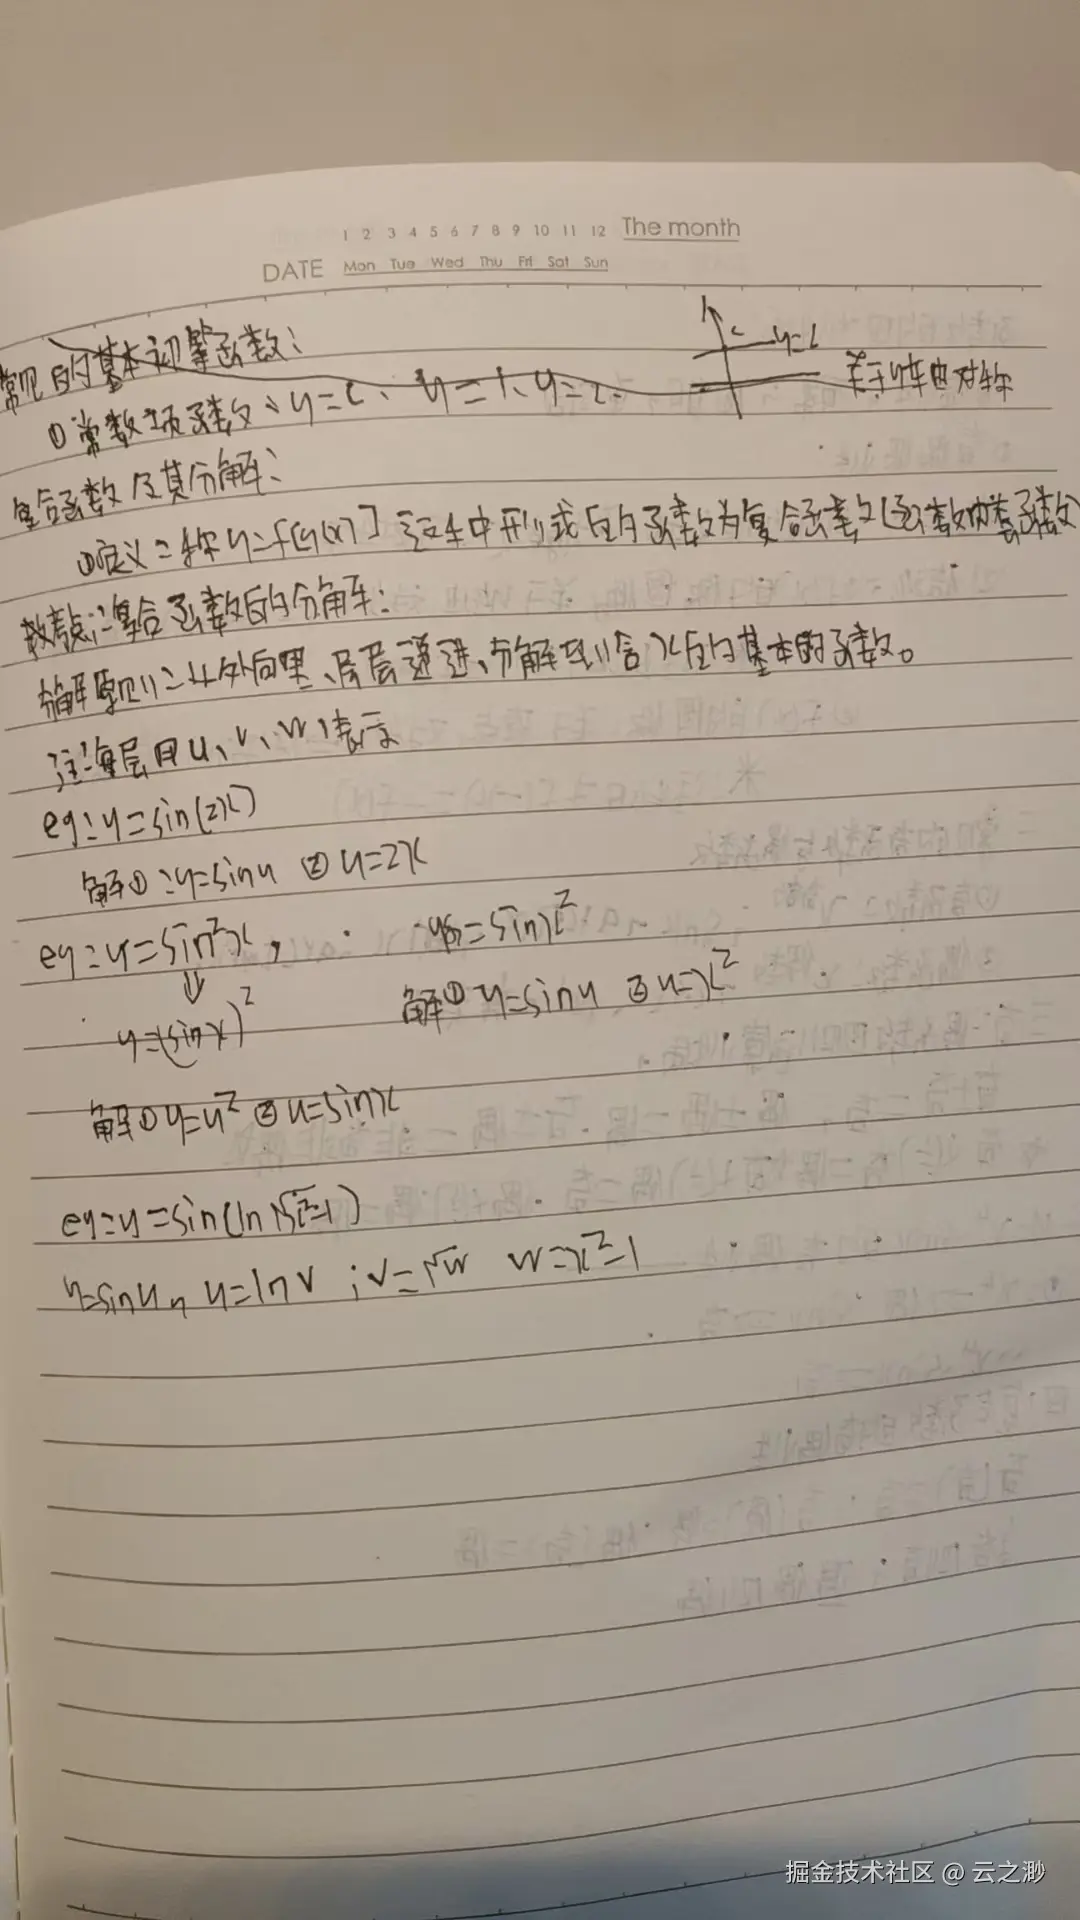 1 2 3 4 5 6 7 8 9 10 11 12 The month
DATE Mon Tue Wed Thu Fri Sat Sun
常见的基本初等函数:
c y=c
①常数项函数、y=c、y=1、y=2. 关于y轴对称
复合函数及其分解:
①定义:称y=f[g(x)]这车中形式的函数为复合函数(函数内套函数)
教考点:复合函数的分解:
分解原则:从外向里、层层递进、分解到含x的基本的函数。
注:每层用u、v、w表示
eg:y=sin(2x)
解①:y=sinu ②u=2x
eg:y=sin²x, y=sinx²
⇓
y=(sinx)² 解①y=sinu ②u=x²
解①y=u² ②u=sinx
eg:y=sin(ln√x²-1)
y=sinu, u=lnv ;v=√w w=x²-1
掘金技术社区 @ 云之渺